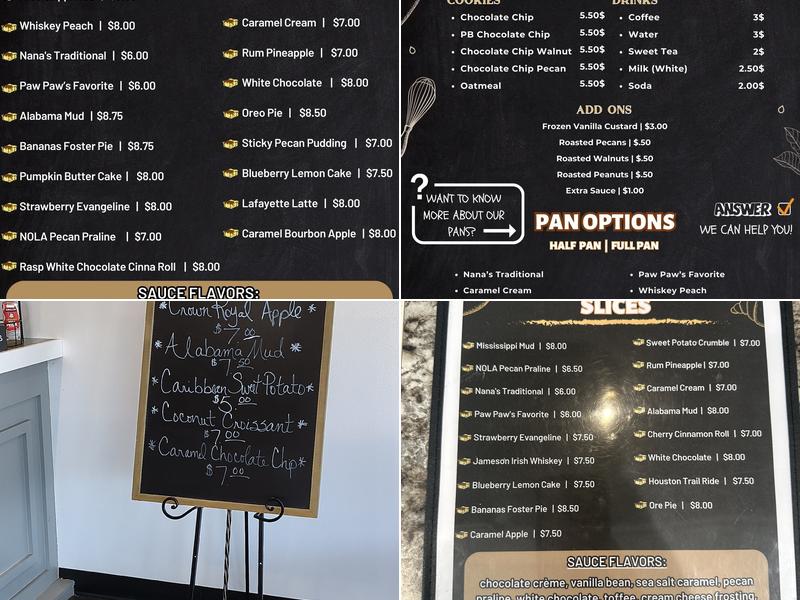 Whiskey Peach | $8.00
Nana's Traditional | $6.00
Paw Paw's Favorite | $6.00
Alabama Mud | $8.75
Bananas Foster Pie | $8.75
Pumpkin Butter Cake | $8.00
Strawberry Evangeline | $8.00
NOLA Pecan Praline | $7.00
Rasp White Chocolate Cinna Roll | $8.00
Caramel Cream | $7.00
Rum Pineapple | $7.00
White Chocolate | $8.00
Oreo Pie | $8.50
Sticky Pecan Pudding | $7.00
Blueberry Lemon Cake | $7.50
Lafayette Latte | $8.00
Caramel Bourbon Apple | $8.00
SAUCE FLAVORS:
COOKIES
• Chocolate Chip 5.50$
• PB Chocolate Chip 5.50$
• Chocolate Chip Walnut 5.50$
• Chocolate Chip Pecan 5.50$
• Oatmeal 5.50$
DRINKS
• Coffee 3$
• Water 3$
• Sweet Tea 2$
• Milk (White) 2.50$
• Soda 2.00$
ADD ONS
Frozen Vanilla Custard | $3.00
Roasted Pecans | $.50
Roasted Walnuts | $.50
Roasted Peanuts | $.50
Extra Sauce | $1.00
?
WANT TO KNOW
MORE ABOUT OUR
PANS?
PAN OPTIONS
HALF PAN | FULL PAN
ANSWER
WE CAN HELP YOU!
• Nana's Traditional
• Caramel Cream
• Paw Paw's Favorite
• Whiskey Peach
*Crown Royal Apple*
$7.00
*Alabama Mud*
$7.50
*Caribbean Sweet Potato*
$5.00
*Coconut Croissant*
$7.00
*Caramel Chocolate Chip*
$7.00
SLICES
Mississippi Mud | $8.00
NOLA Pecan Praline | $6.50
Nana's Traditional | $6.00
Paw Paw's Favorite | $6.00
Strawberry Evangeline | $7.50
Jameson Irish Whiskey | $7.50
Blueberry Lemon Cake | $7.50
Bananas Foster Pie | $8.50
Caramel Apple | $7.50
Sweet Potato Crumble | $7.00
Rum Pineapple | $7.00
Caramel Cream | $7.00
Alabama Mud | $8.00
Cherry Cinnamon Roll | $7.00
White Chocolate | $8.00
Houston Trail Ride | $7.50
Ore Pie | $8.00
SAUCE FLAVORS:
chocolate crème, vanilla bean, sea salt caramel, pecan
praline, white chocolate, toffee, cream cheese frosting,